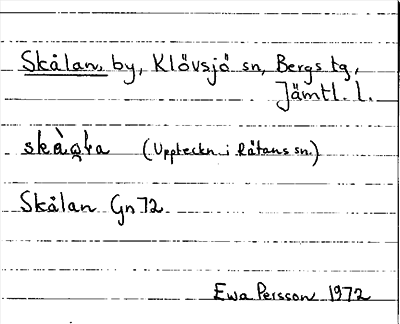 Skålan, by, Klövsjö sn, Bergs tg,
Jämtl. l.
(Uppteckn. i Råtans sn.)
Skålan Gn 72
Ewa Persson 1972